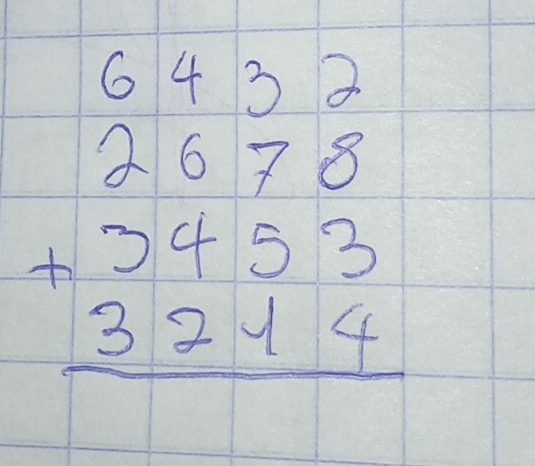 6432
2678
+ 3453
3214